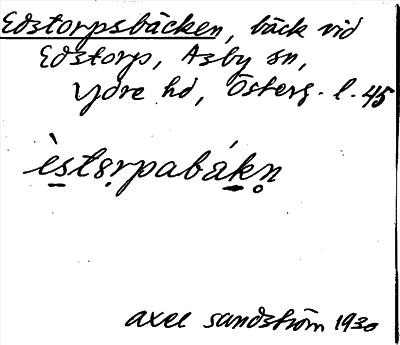 Edstorpsbäcken, bäck vid
Edstorp, Asby sn,
Ydre hd, Österg. l. 45
èstɵrpabákn̥
axel sandström 1930